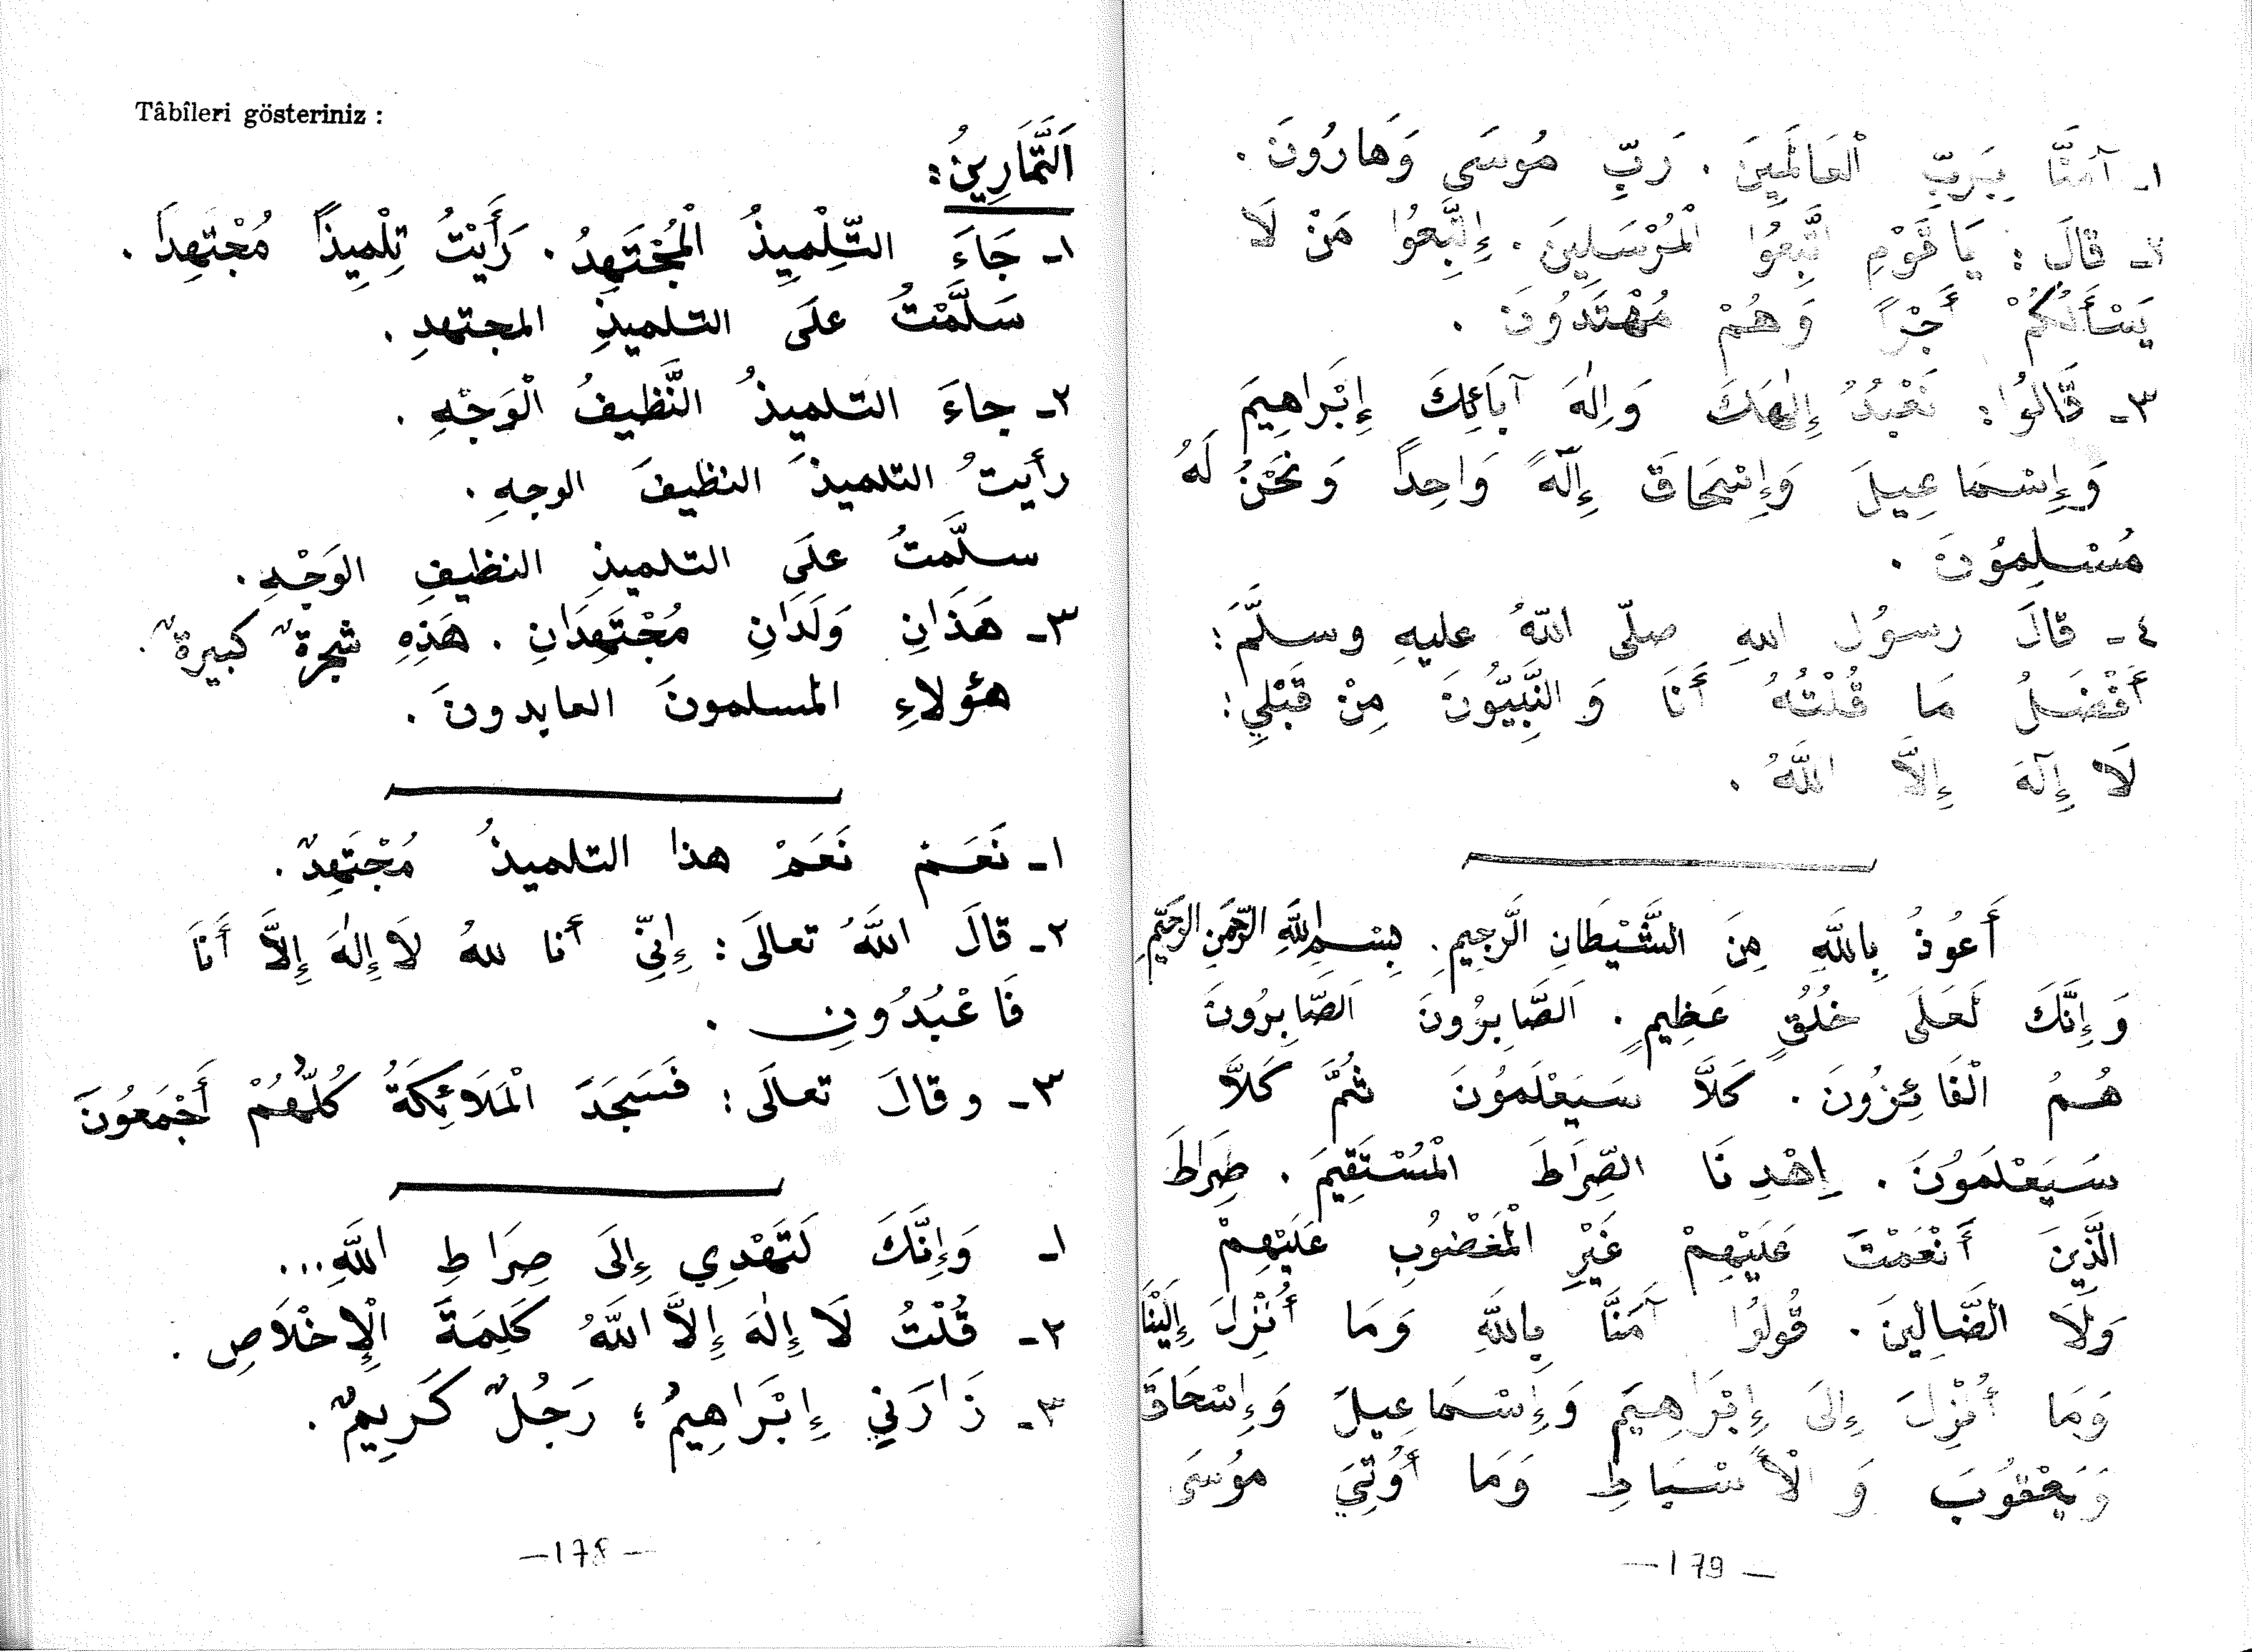 Tâbîleri gösteriniz :
اَلتَّمَارِينُ:
١ـ جَاءَ التِّلْمِيذُ الْمُجْتَهِدُ. رَأَيْتُ تِلْمِيذاً مُجْتَهِداً.
سَلَّمْتُ علَى التلميذِ المجتهدِ.
٢ـ جاءَ التلميذُ النَّظيفُ الْوَجْهِ.
رأيتُ التلميذَ النظيفَ الوجهِ.
سلَّمتُ علَى التلميذِ النظيفِ الوَجْهِ.
٣ـ هَذَانِ وَلَدَانِ مُجْتَهِدَانِ. هَذِهِ شجرةٌ كبيرةٌ.
هؤلاءِ المسلمونَ العابدونَ.
١ـ نَعَمْ نَعَمْ هذا التلميذُ مُجْتَهِدٌ.
٢ـ قالَ اللَّهُ تعالَى: إِنِّي أنا للهُ لَا إِلٰهَ إِلاَّ أَنَا
فَاعْبُدُونِ.
٣ـ وقالَ تعالَى: فَسَجَدَ الْمَلَائِكَةُ كُلُّهُمْ أَجْمَعُونَ
١ـ وَإِنَّكَ لَتَهْدِي إِلَى صِرَاطِ اللَّهِ...
٢ـ قُلْتُ لَا إِلٰهَ إِلاَّ اللَّهُ كَلِمَةَ الْإِخْلَاصِ.
٣ـ زَارَنِي إِبْرَاهِيمُ؛ رَجُلٌ كَرِيمٌ.
—178—
١ـ آمَنَّا بِرَبِّ الْعَالَمِينَ. رَبِّ مُوسَى وَهَارُونَ.
٢ـ قالَ: يَاقَوْمِ اتَّبِعُوا الْمُرْسَلِينَ. إِتَّبِعُوا مَنْ لَا
يَسْأَلُكُمْ أَجْراً وَهُمْ مُهْتَدُونَ.
٣ـ قَالُوا: نَعْبُدُ إِلٰهَكَ وَإِلٰهَ آبَائِكَ إِبْرَاهِيمَ
وَإِسْمَاعِيلَ وَإِسْحَاقَ إِلَهاً وَاحِداً وَنَحْنُ لَهُ
مُسْلِمُونَ.
٤ـ قالَ رسوُل اللهِ صلّى اللّهُ عليهِ وسلَّمَ:
أَفْضَلُ مَا قُلْتُهُ أَنَا وَالنَّبِيُّونَ مِنْ قَبْلِي:
لَا إِلَهَ إِلاَّ اللَّهُ.
أَعُوذُ بِاللَّهِ مِنَ الشَّيْطَانِ الرَّجِيمِ. بِسْمِ اللَّهِ الرَّحْمَنِ الرَّحِيمِ
وَإِنَّكَ لَعَلَى خُلُقٍ عَظِيمٍ. اَلصَّابِرُونَ اَلصَّابِرُونَ
هُمُ الْفَائِزُونَ. كَلاَّ سَيَعْلَمُونَ ثُمَّ كَلاَّ
سَيَعْلَمُونَ. اِهْدِنَا الصِّرَاطَ الْمُسْتَقِيمَ. صِرَاطَ
الَّذِينَ أَنْعَمْتَ عَلَيْهِمْ غَيْرِ الْمَغْضُوبِ عَلَيْهِمْ
وَلَا الضَّالِينَ. قُولُوا آمَنَّا بِاللَّهِ وَمَا أُنْزِلَ إِلَيْنَا
وَمَا أُنْزِلَ إِلَى إِبْرَاهِيمَ وَإِسْمَاعِيلَ وَإِسْحَاقَ
وَيَعْقُوبَ وَالْأَسْبَاطِ وَمَا أُوُتِيَ مُوسَى
—179—